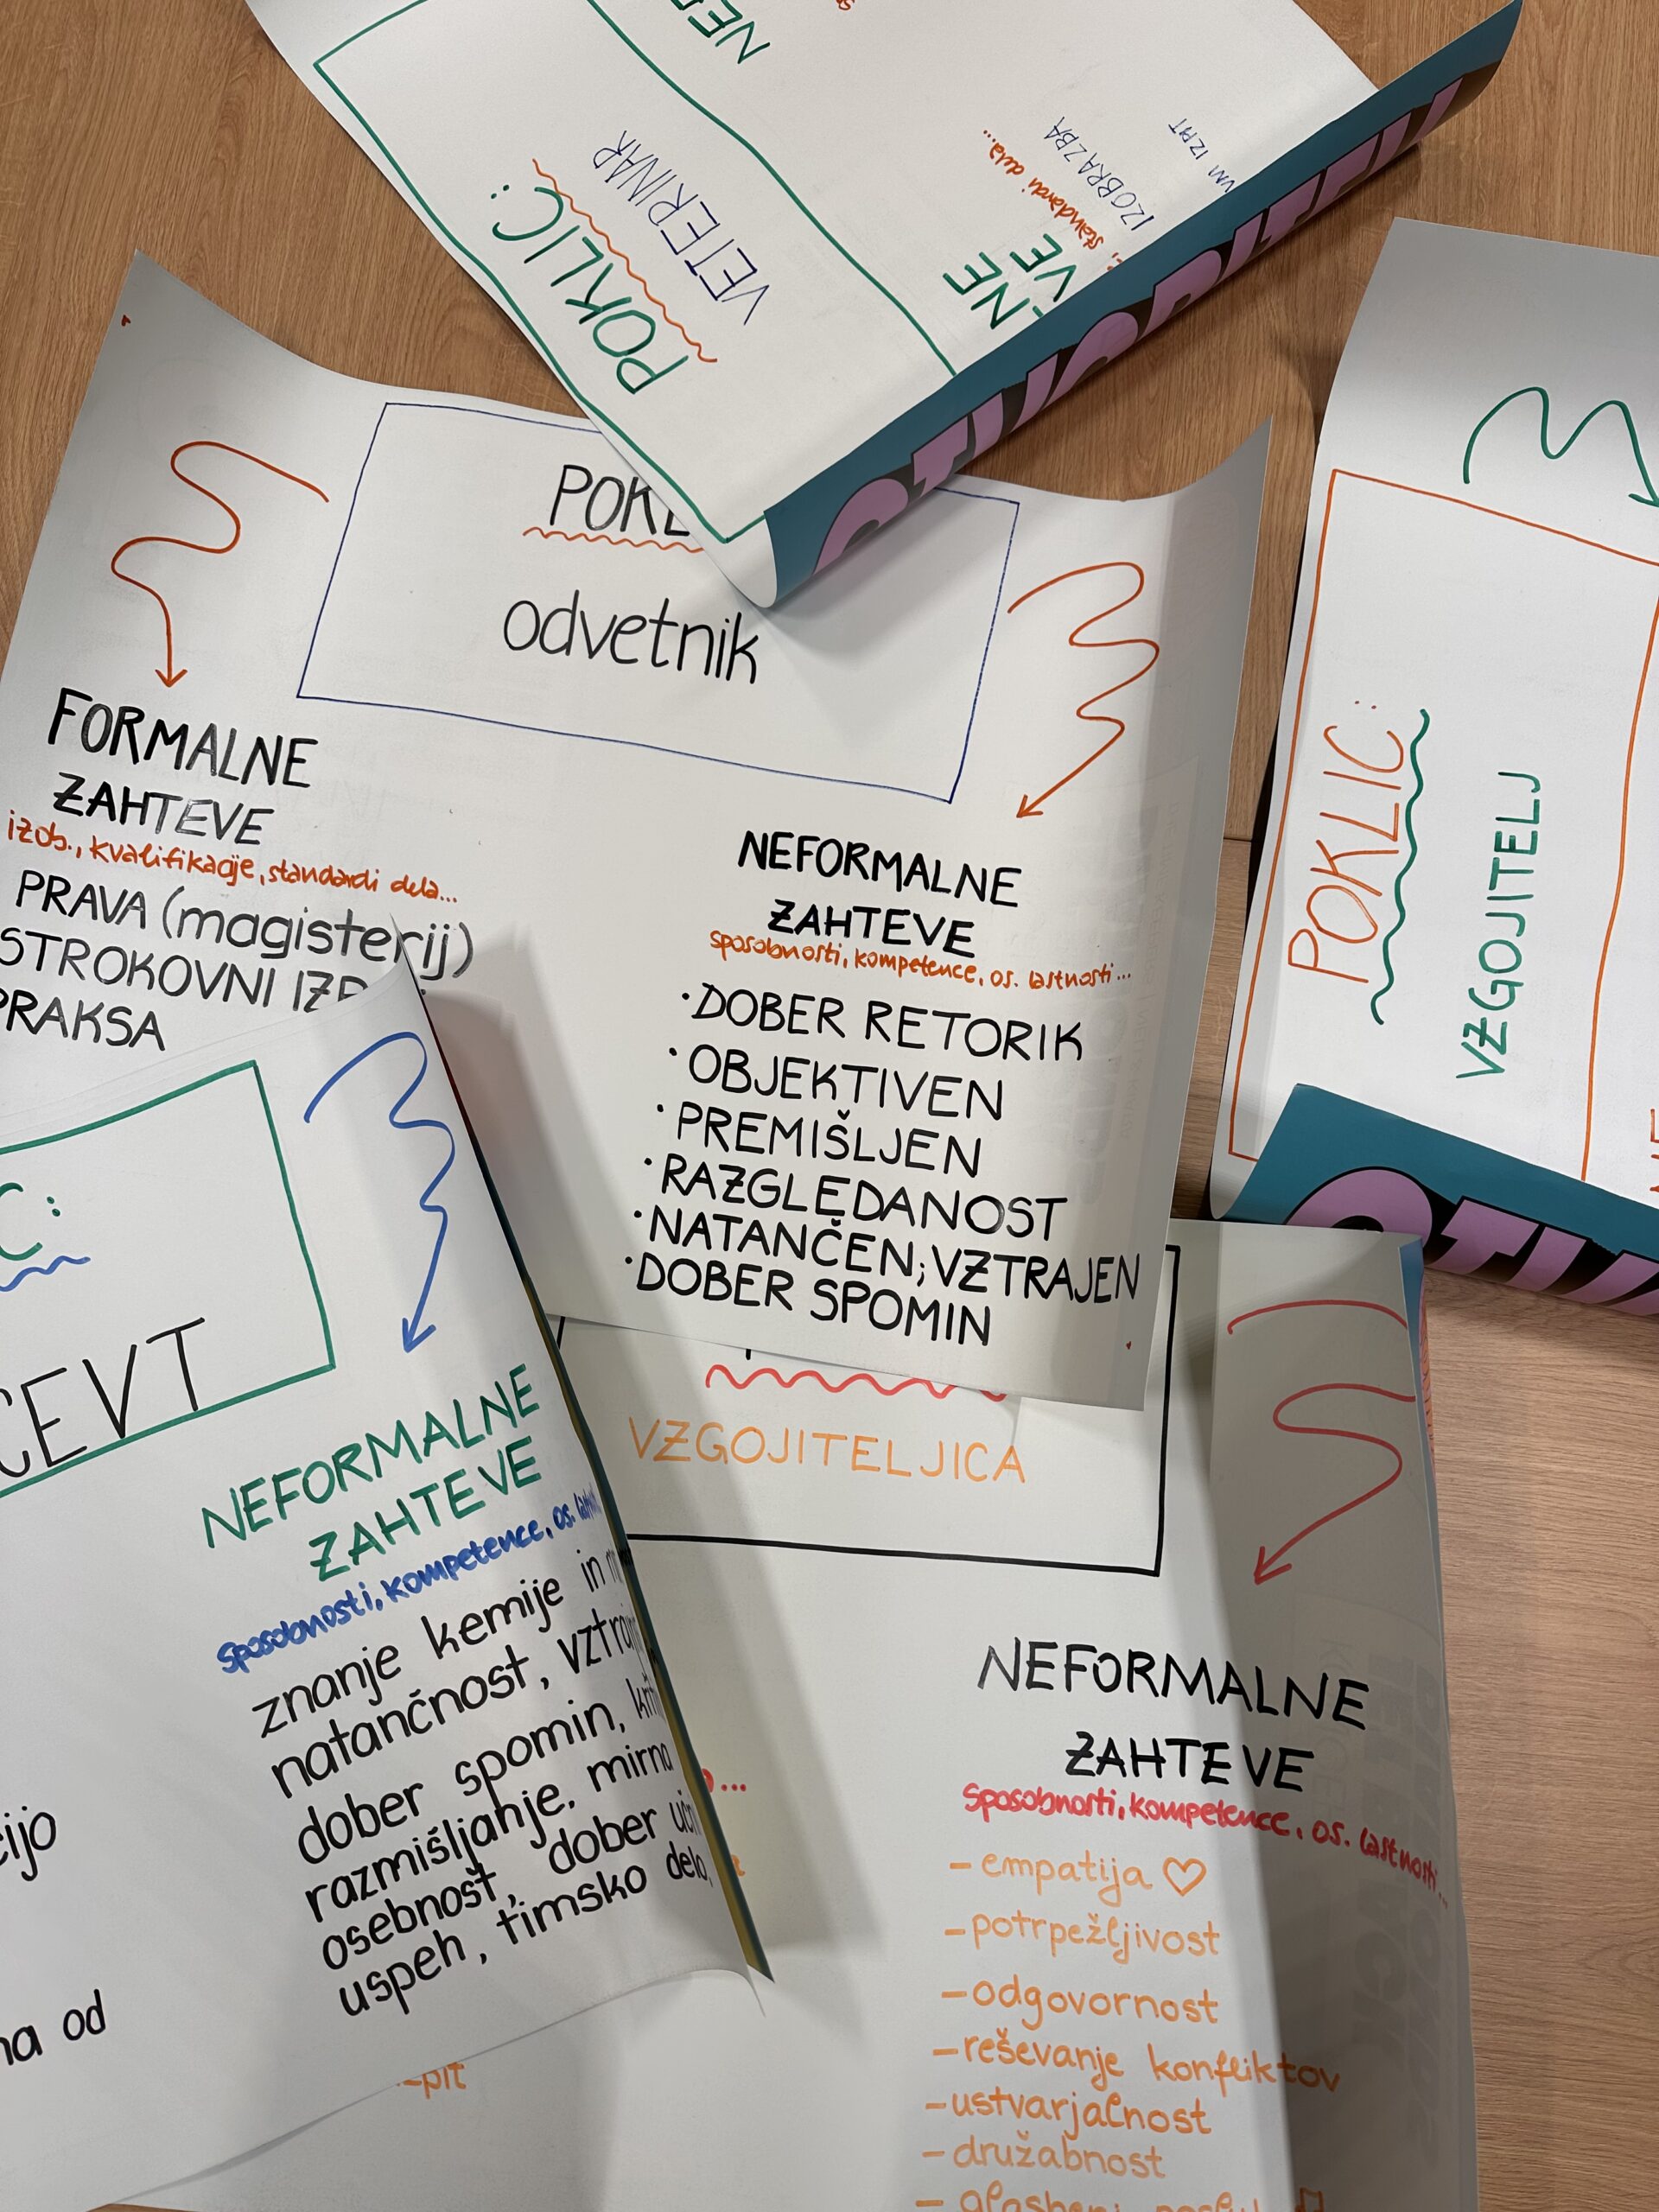 POKLIC:
VETERINAR
IZOBRAZBA
standardi dela...
odvetnik
FORMALNE
ZAHTEVE
izob., kvalifikacije, standardi dela...
PRAVA (magisterij)
STROKOVNI
PRAKSA
NEFORMALNE
ZAHTEVE
sposobnosti, kompetence, os. lastnosti...
• DOBER RETORIK
• OBJEKTIVEN
• PREMIŠLJEN
• RAZGLEDANOST
• NATANČEN; VZTRAJEN
• DOBER SPOMIN
POKLIC:
VZGOJITELJ
NEFORMALNE
ZAHTEVE
sposobnosti, kompetence, os.
znanje kemije in
natančnost,
dober spomin,
razmišljanje. mirna
osebnost, dober
uspeh, timsko delo,
na od
VZGOJITELJICA
NEFORMALNE
ZAHTEVE
sposobnosti, kompetence, os. lastnosti...
- empatija ♡
- potrpežljivost
- odgovornost
- reševanje konfliktov
- ustvarjalnost
- družabnost